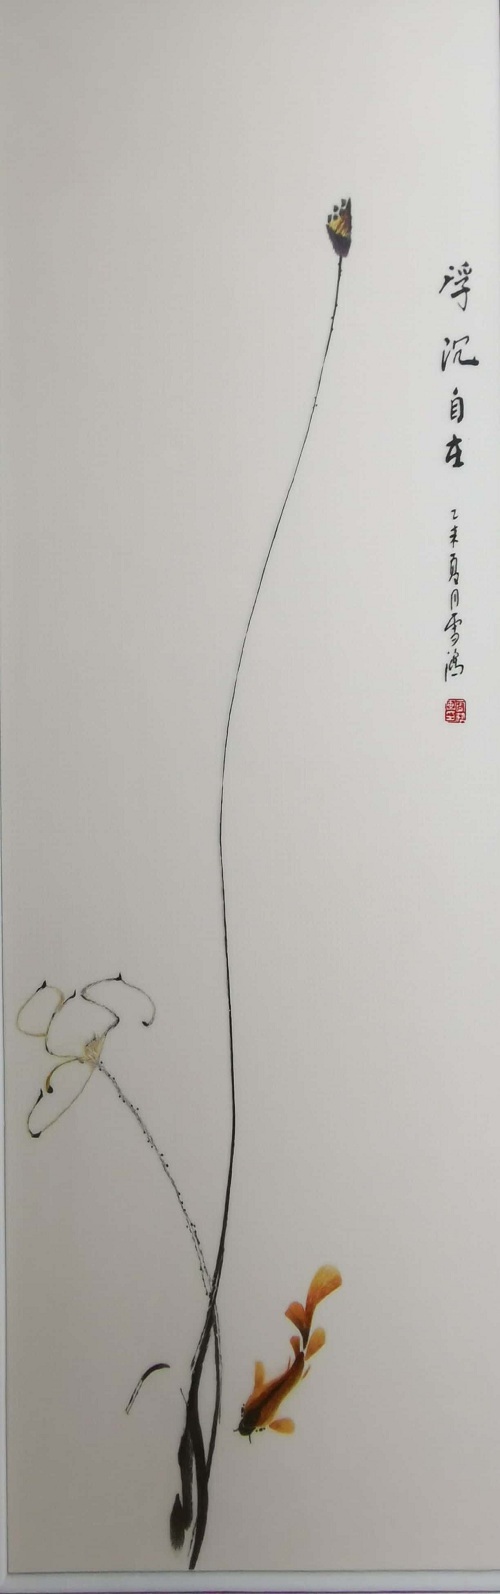 浮沉自在
乙未夏月雪鴻